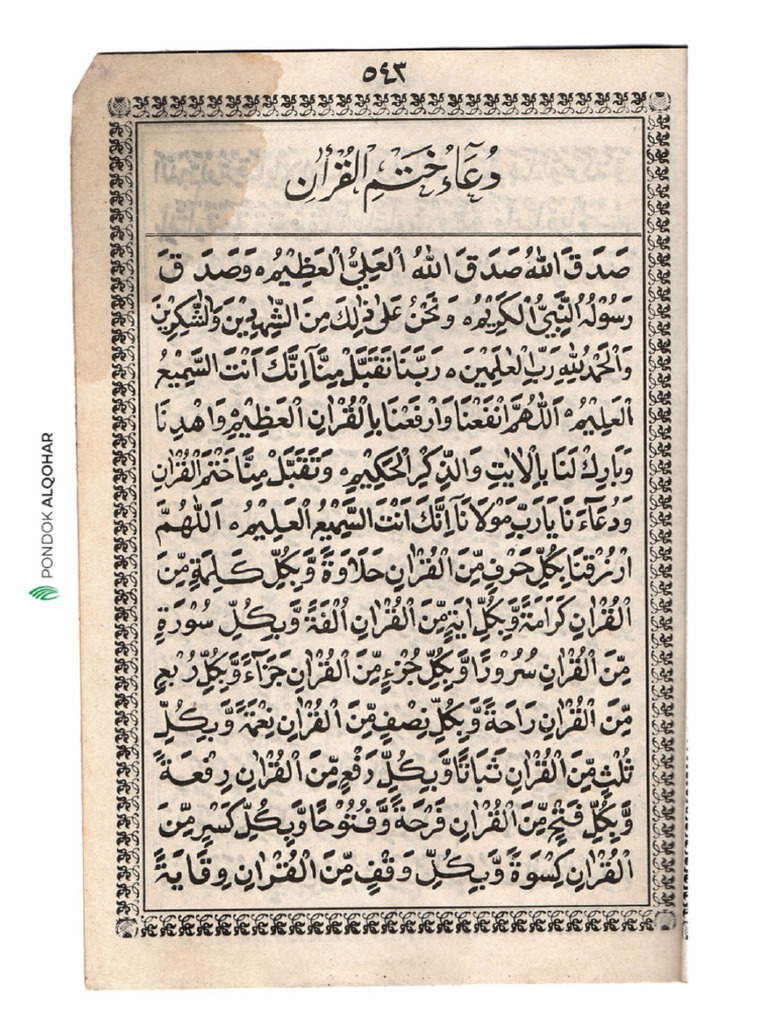 ٥٤٣
دُعَآءُ خَتْمِ الْقُرْاٰنِ
صَدَقَ اللّٰهُ صَدَقَ اللّٰهُ الْعَلِيُّ الْعَظِيْمُ ه وَصَدَقَ
رَسُوْلُهُ النَّبِيُّ الْكَرِيْمُ ه وَنَحْنُ عَلٰى ذٰلِكَ مِنَ الشّٰهِدِيْنَ وَالشّٰكِرِيْنَ
وَالْحَمْدُ لِلّٰهِ رَبِّ الْعٰلَمِيْنَ ه رَبَّنَا تَقَبَّلْ مِنَّآ اِنَّكَ اَنْتَ السَّمِيْعُ
الْعَلِيْمُ ه اَللّٰهُمَّ انْفَعْنَا وَارْفَعْنَا بِالْقُرْاٰنِ الْعَظِيْمِ ه وَاهْدِنَا
وَبَارِكْ لَنَا بِالْاٰيٰتِ وَالذِّكْرِ الْحَكِيْمِ ه وَتَقَبَّلْ مِنَّا خَتْمَ الْقُرْاٰنِ
وَدُعَآءَنَا يَا رَبِّ مَوْلَانَآ اِنَّكَ اَنْتَ السَّمِيْعُ الْعَلِيْمُ ه اَللّٰهُمَّ
ارْزُقْنَا بِكُلِّ حَرْفٍ مِّنَ الْقُرْاٰنِ حَلَاوَةً وَّبِكُلِّ كَلِمَةٍ مِّنَ
الْقُرْاٰنِ كَرَامَةً وَّبِكُلِّ اٰيَةٍ مِّنَ الْقُرْاٰنِ اُلْفَةً وَّبِكُلِّ سُوْرَةٍ
مِّنَ الْقُرْاٰنِ سُرُوْرًا وَّبِكُلِّ جُزْءٍ مِّنَ الْقُرْاٰنِ جَزَآءً وَّبِكُلِّ رُبْعٍ
مِّنَ الْقُرْاٰنِ رَاحَةً وَّبِكُلِّ نِصْفٍ مِّنَ الْقُرْاٰنِ نِعْمَةً وَّبِكُلِّ
ثُلُثٍ مِّنَ الْقُرْاٰنِ ثَبَاتًا وَّبِكُلِّ رَفْعٍ مِّنَ الْقُرْاٰنِ رِفْعَةً
وَّبِكُلِّ فَتْحٍ مِّنَ الْقُرْاٰنِ فَرْحَةً وَّفُتُوْحًا وَّبِكُلِّ كَسْرٍ مِّنَ
الْقُرْاٰنِ كِسْوَةً وَّبِكُلِّ وَقْفٍ مِّنَ الْقُرْاٰنِ وِقَايَةً
PONDOK ALQOHAR